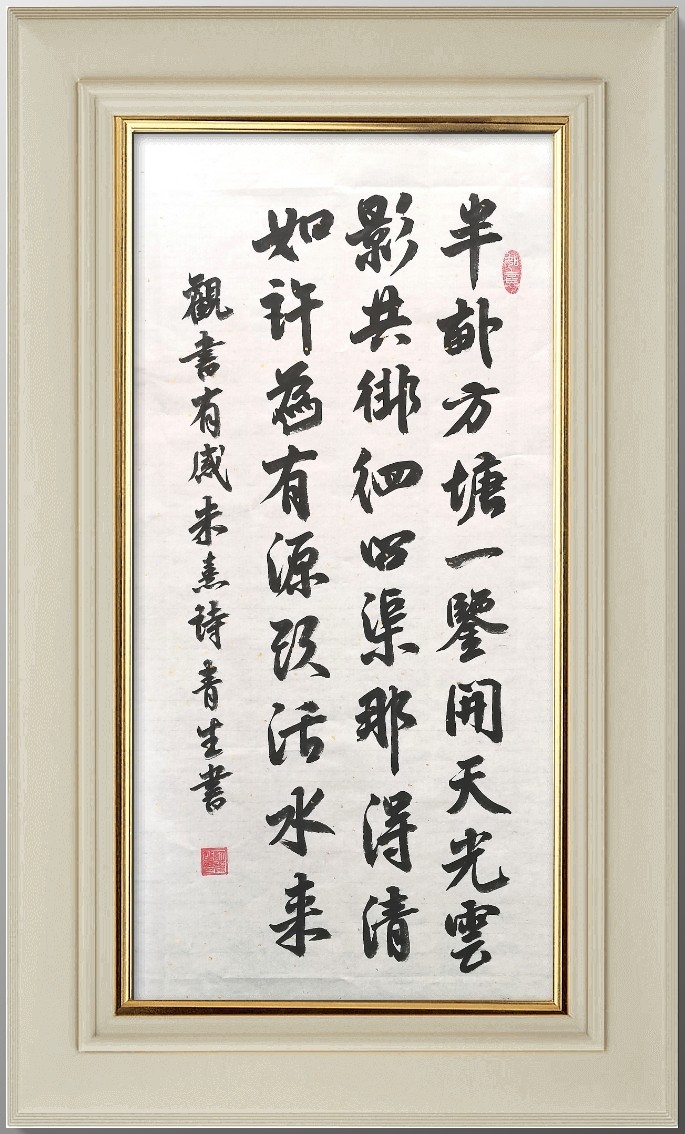 半畝方塘一鑒開天光雲
影共徘徊問渠那得清
如許為有源頭活水來
觀書有感朱熹詩青生書